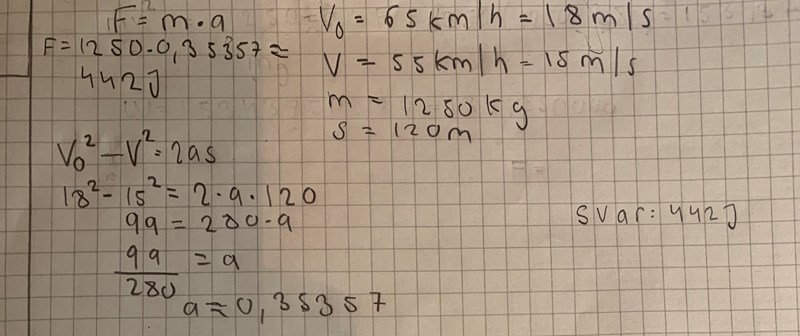 F = m · a
F = 1250 · 0,35357 ≈
442J
V₀ = 65 km/h = 18 m/s
V = 55 km/h = 15 m/s
m = 1250 kg
s = 120m
V₀² - V² = 2as
18² - 15² = 2 · a · 120
99 = 280 · a
99/280 = a
a ≈ 0,35357
Svar: 442J